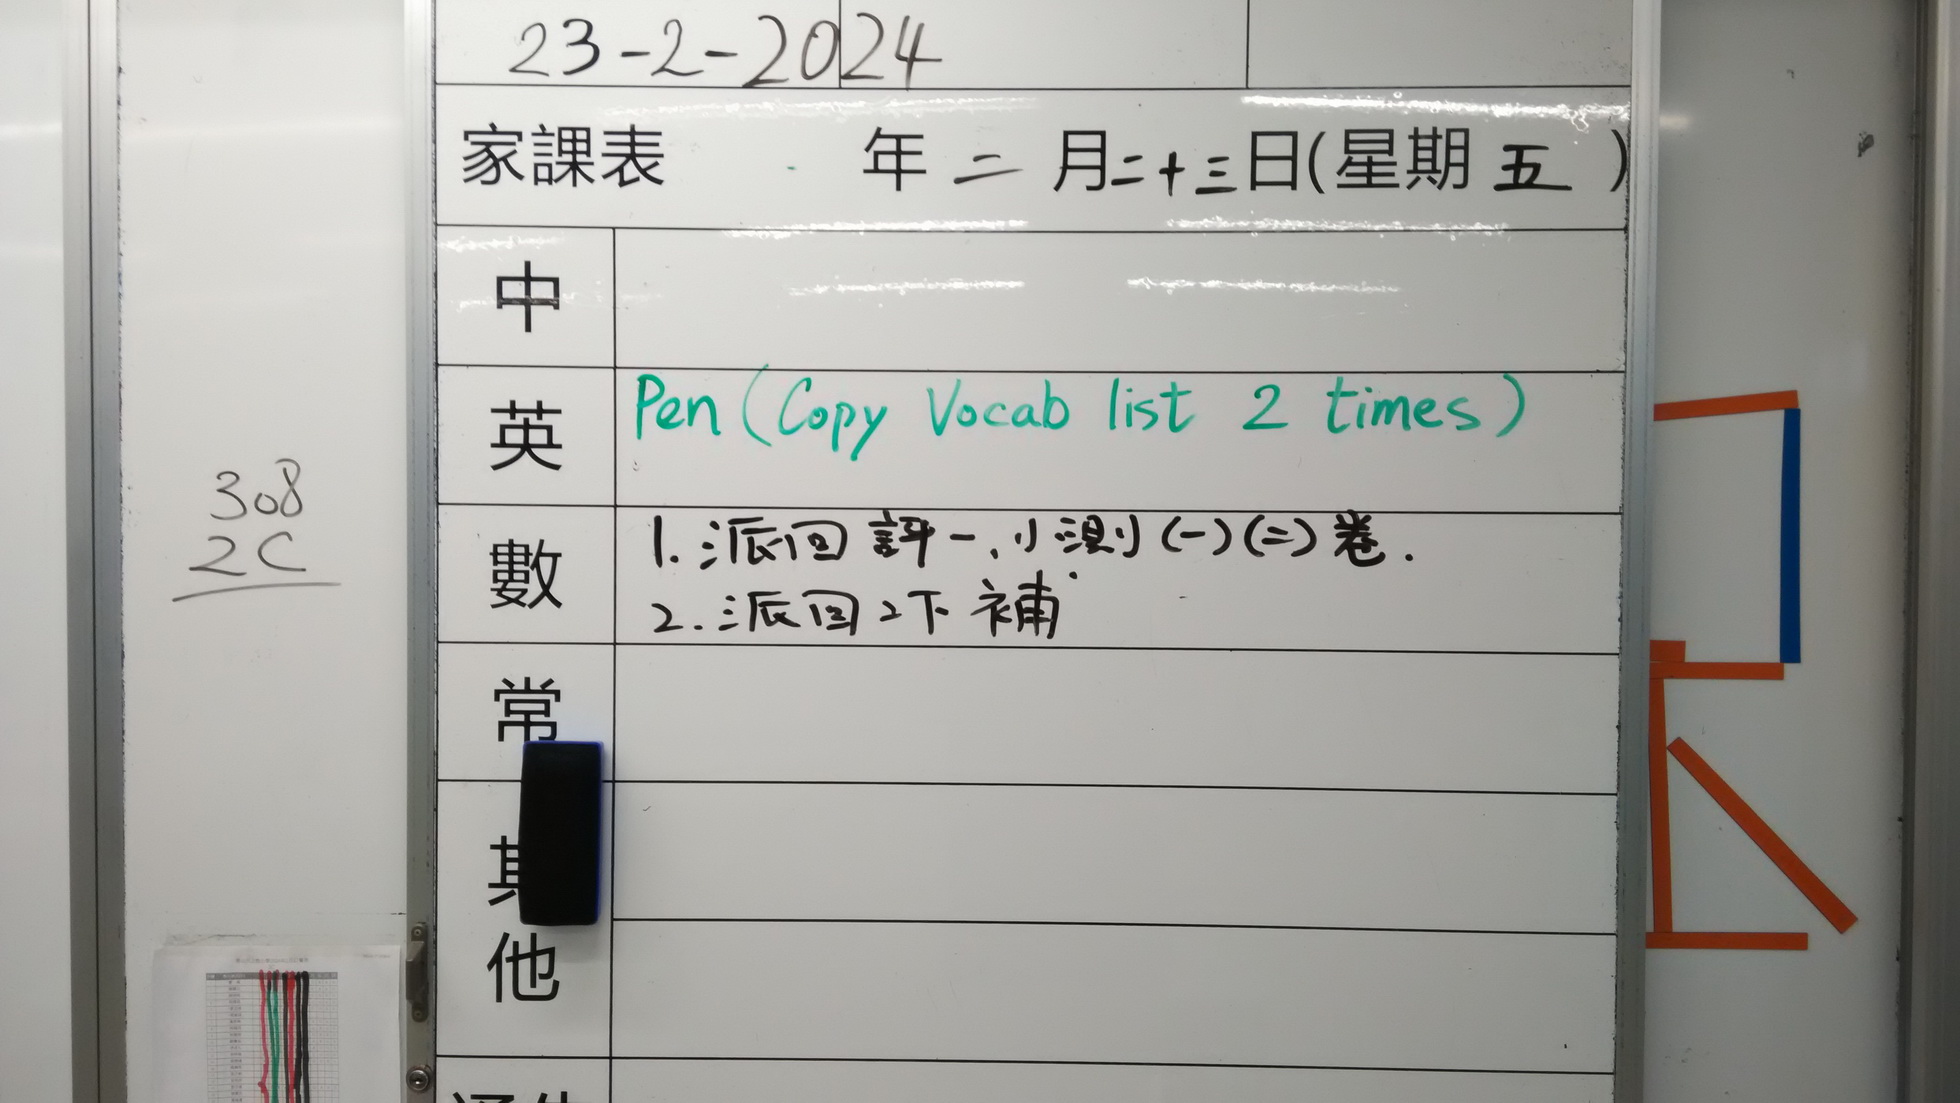 23-2-2024
家課表 年二月二十三日(星期五)
中
英 Pen (Copy Vocab list 2 times)
數 1. 派回評一、小測(一)(二)卷.
2. 派回2下補
常
其他
308
2C